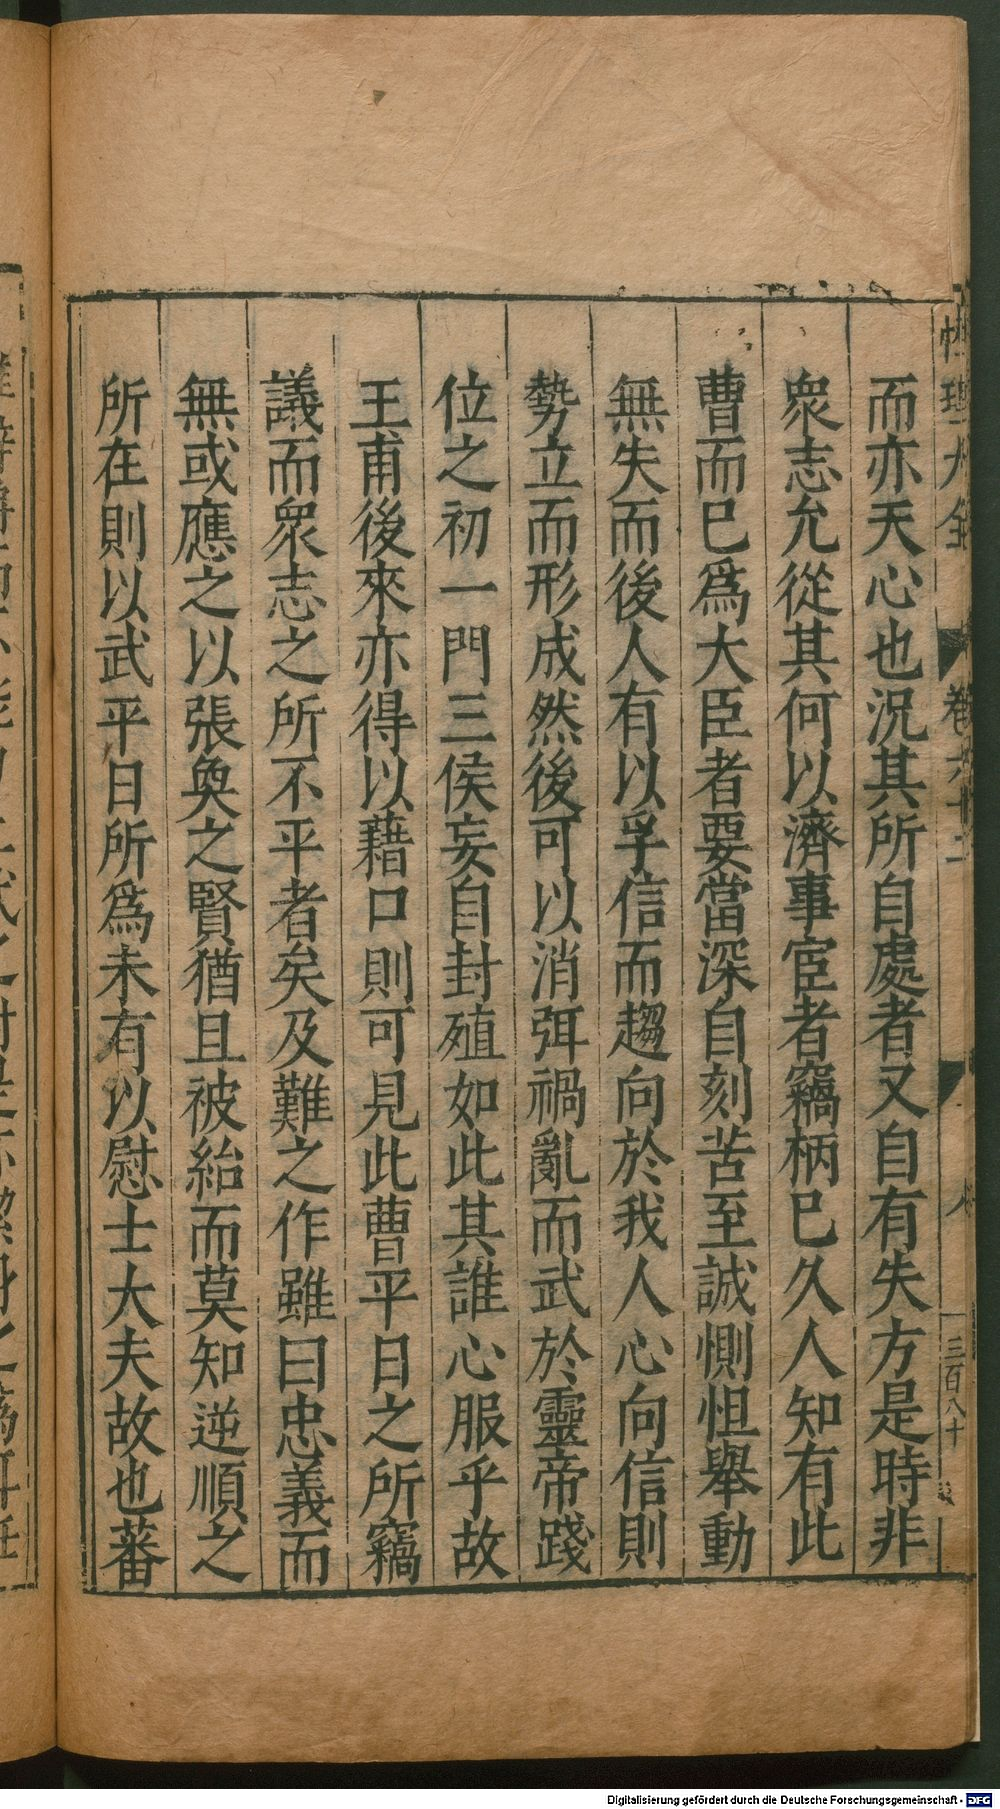 而亦天心也況其所自處者又自有失方是時非
衆志允從其何以濟事宦者竊柄已久人知有此
曹而已爲大臣者要當深自刻苦至誠惻怛舉動
無失而後人有以孚信而趨向於我人心向信則
勢立而形成然後可以消弭禍亂而武於靈帝踐
位之初一門三侯妄自封殖如此其誰心服乎故
王甫後來亦得以藉口則可見此曹平日之所竊
議而衆志之所不平者矣及難之作雖曰忠義而
無或應之以張奐之賢猶且被紿而莫知逆順之
所在則以武平日所爲未有以慰士大夫故也蕃
性理大全
卷六十二
三百八十
Digitalisierung gefördert durch die Deutsche Forschungsgemeinschaft - DFG